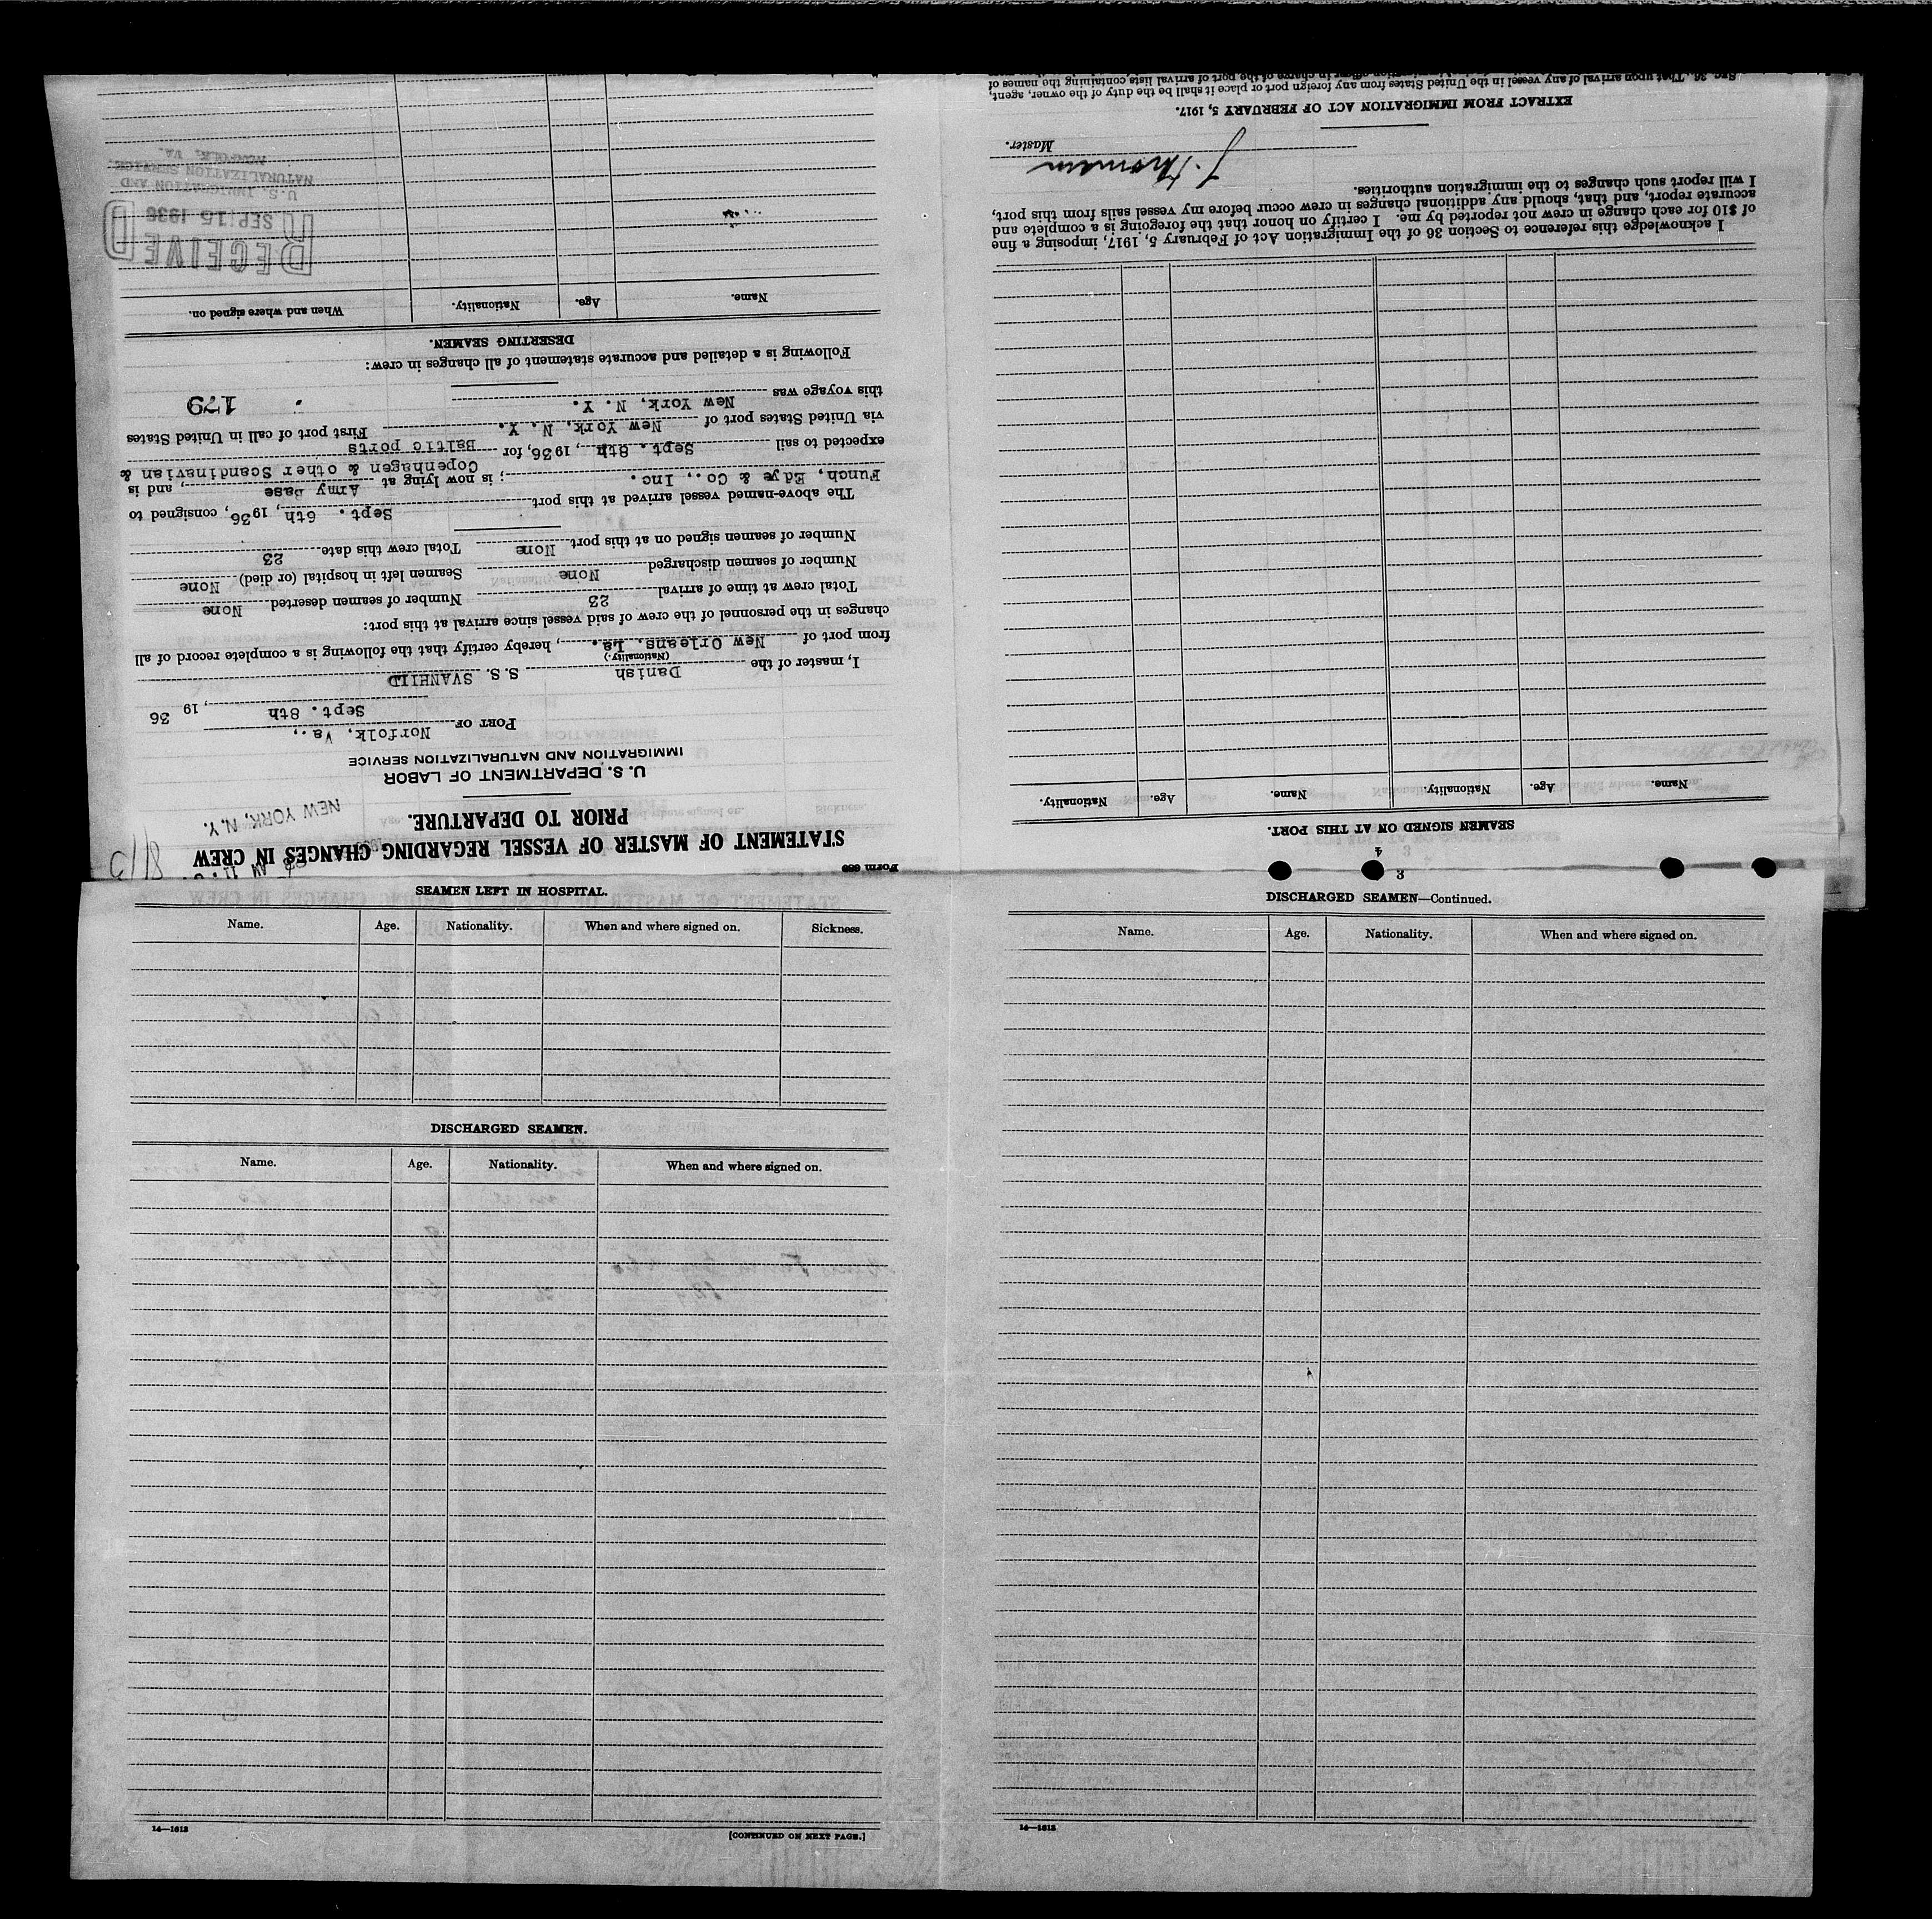 Form 689
STATEMENT OF MASTER OF VESSEL REGARDING CHANGES IN CREW
PRIOR TO DEPARTURE.
NEW YORK, N.Y.
U. S. DEPARTMENT OF LABOR
IMMIGRATION AND NATURALIZATION SERVICE
PORT OF Norfolk, Va.,
Sept. 8th, 19 36
I, master of the Danish S.S. SVANHILD
(Nationality.)
from port of New Orleans. La., hereby certify that the following is a complete record of all
changes in the personnel of the crew of said vessel since arrival at this port:
Total crew at time of arrival 23 Number of seamen deserted None
Number of seamen discharged None Seamen left in hospital (or died) None
Number of seamen signed on at this port None Total crew this date 23
The above-named vessel arrived at this port Sept. 6th, 1936, consigned to
Funch, Edye & Co., Inc.; is now lying at Army Base, and is
Copenhagen & other Scandinavian &
expected to sail Sept. 8th, 1936, for Baltic ports
via United States port of New York, N. Y. First port of call in United States
this voyage was New York, N. Y.
179
Following is a detailed and accurate statement of all changes in crew:
DESERTING SEAMEN.
Name. Age. Nationality. When and where signed on.
RECEIVED
SEP 15 1936
U. S. IMMIGRATION AND
NATURALIZATION SERVICE
NORFOLK, VA.
3
4
SEAMEN SIGNED ON AT THIS PORT.
Name. Age. Nationality. Name. Age. Nationality.
I acknowledge this reference to Section 36 of the Immigration Act of February 5, 1917, imposing a fine
of $10 for each change in crew not reported by me. I certify on honor that the foregoing is a complete and
accurate report, and that, should any additional changes in crew occur before my vessel sails from this port,
I will report such changes to the immigration authorities.
Master.
EXTRACT FROM IMMIGRATION ACT OF FEBRUARY 5, 1917.
SEC. 36. That upon arrival of any vessel in the United States from any foreign port or place it shall be the duty of the owner, agent,
in charge of the port of arrival lists containing the names of
SEAMEN LEFT IN HOSPITAL.
Name. Age. Nationality. When and where signed on. Sickness.
DISCHARGED SEAMEN.
Name. Age. Nationality. When and where signed on.
14—1613
[CONTINUED ON NEXT PAGE.]
DISCHARGED SEAMEN—Continued.
Name. Age. Nationality. When and where signed on.
14—1613